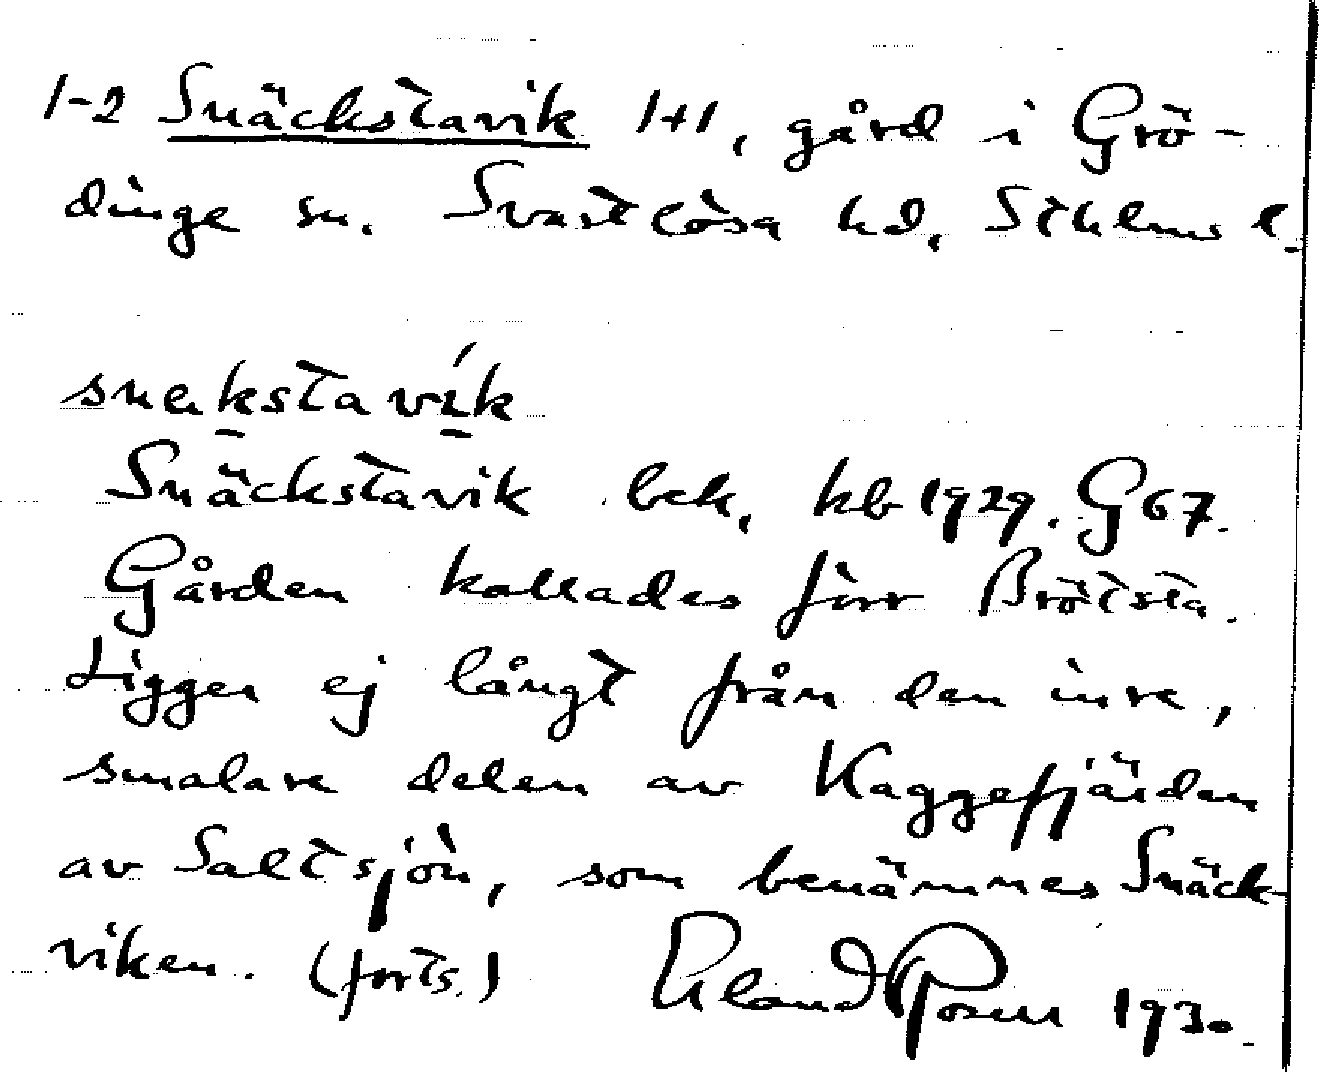 1-2 Snäckstavik 1+1, gård i Grö-
dinge sn. Svartlösa hd, Sthlms l.
snekstavík
Snäckstavik bek, kb 1929. G67.
Gården kallades förr Brötsta.
Ligger ej långt från den inre,
smalare delen av Kaggefjärden
av Saltsjön, som benämnes Snäck-
viken. (forts.) Erland Rosell 1930.